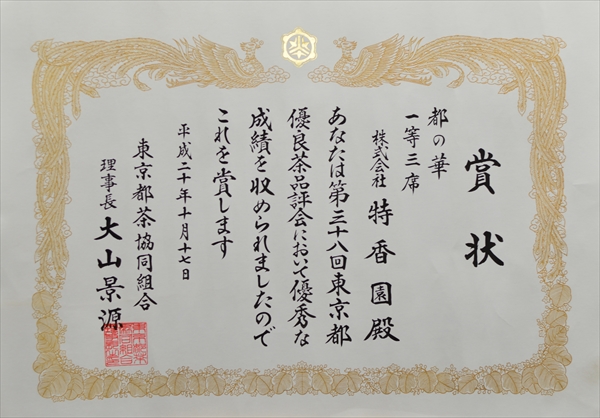 賞状
都の華
一等三席
株式会社 特香園殿
あなたは第三十八回東京都
優良茶品評会において優秀な
成績を収められましたので
これを賞します
平成二十年十月十七日
東京都茶協同組合
理事長 大山景源